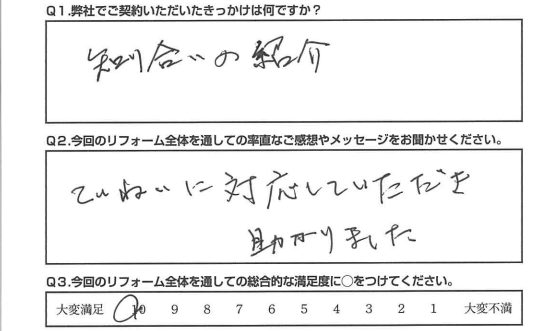 Q1.弊社でご契約いただいたきっかけは何ですか？
知り合いの紹介
Q2.今回のリフォーム全体を通しての率直なご感想やメッセージをお聞かせください。
ていねいに対応していただき
助かりました
Q3.今回のリフォーム全体を通しての総合的な満足度に○をつけてください。
大変満足 10 9 8 7 6 5 4 3 2 1 大変不満